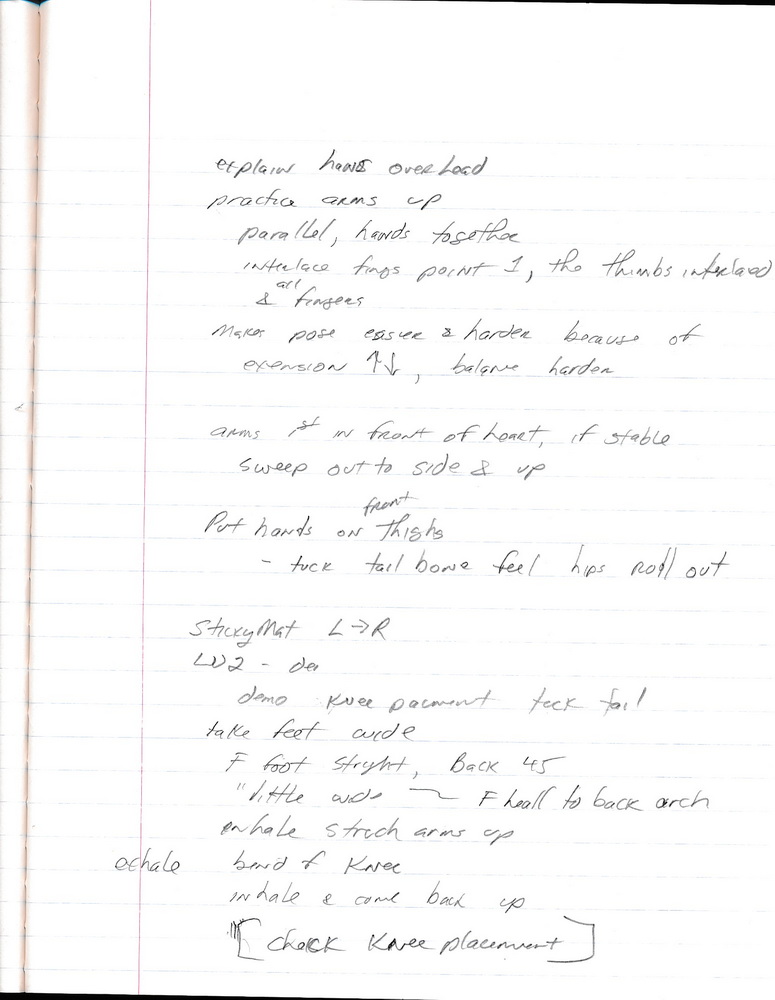 explain hands overhead
practice arms up
parallel, hands together
interlace fings point 1, the thimbs interlaced
& all fingers
makes pose easier & harder because of
exension ↑↓, balance harder
arms 1st in front of heart, if stable
sweep out to side & up
Put hands on front thighs
- tuck tail bone feel hips roll out
StickyMat L→R
WD2 - de
demo knee pacment tuck tail
take feet wide
F foot stryht, Back 45
"little wide ~ F heall to back arch
enhale strech arms up
exhale bend f Knee
inhale & come back up
[check Knee placement]